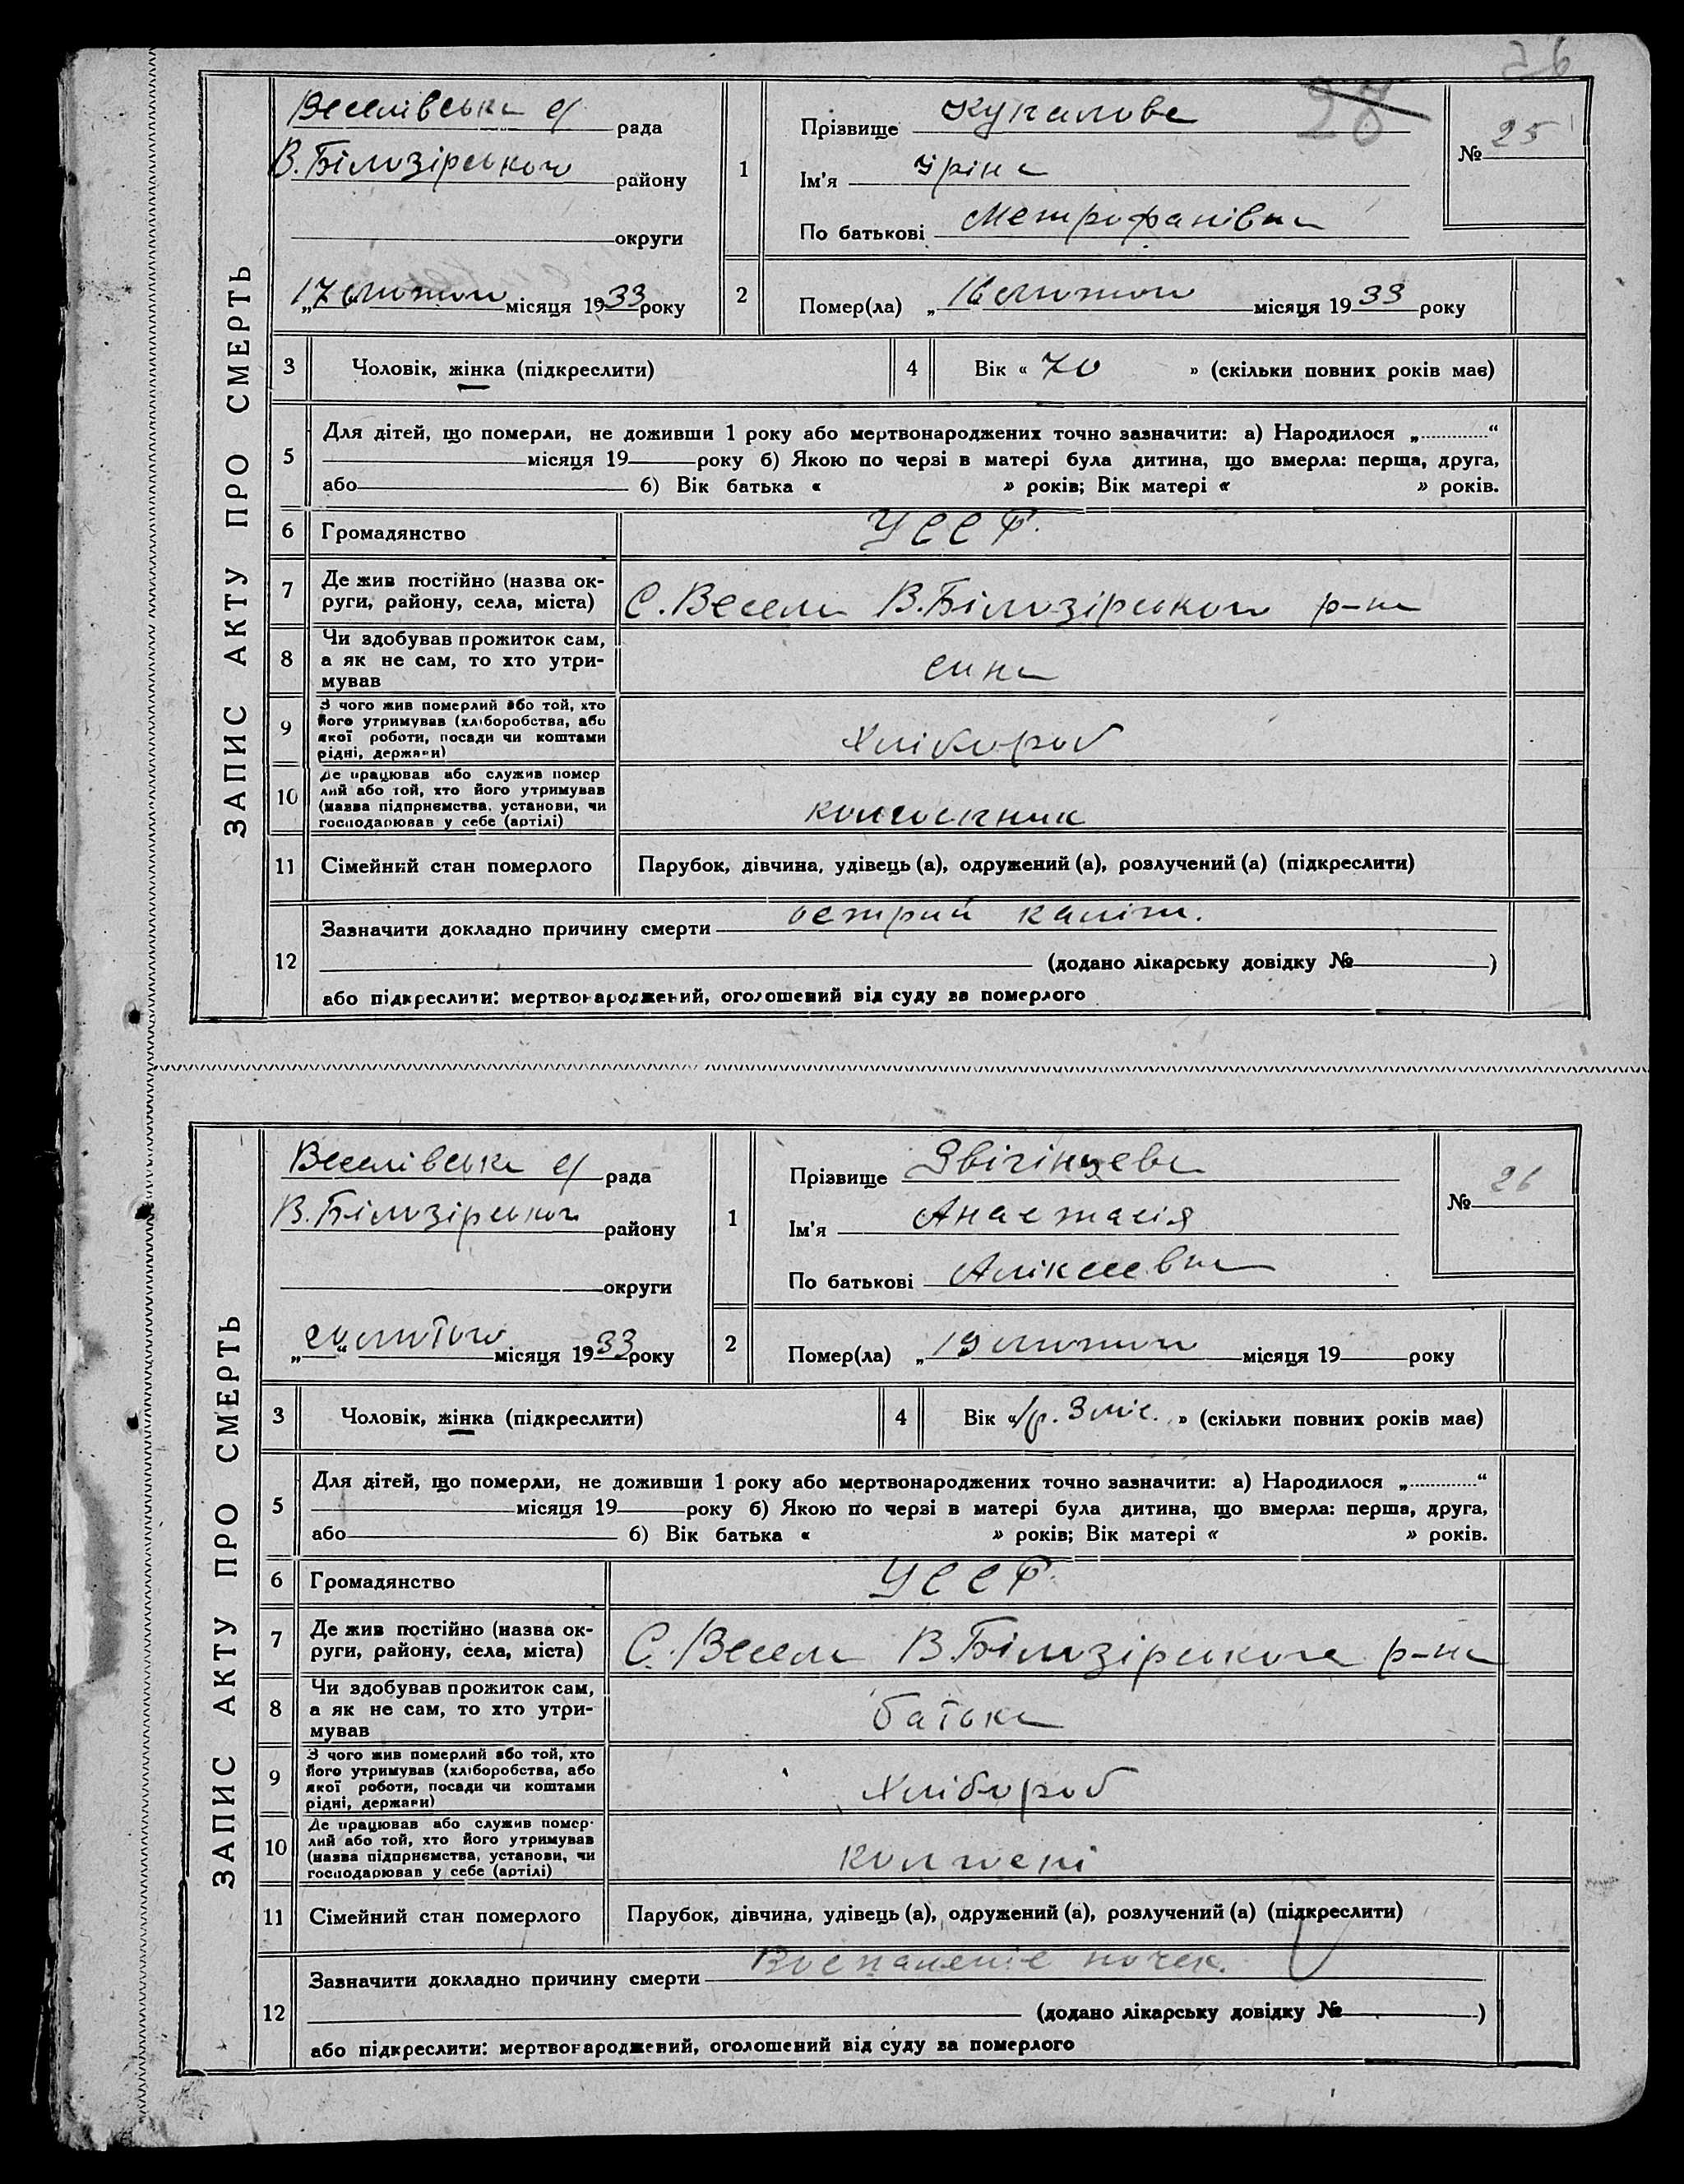 56
28
ЗАПИС АКТУ ПРО СМЕРТЬ
Веселівська с/ рада
В. Білозірського району
округи
„17 лютого місяця 1933 року
1
Прізвище
Ім'я Іріна
По батькові Метрофанівна
№ 25
2
Помер(ла) „16 лютого місяця 1933 року
3 Чоловік, жінка (підкреслити)
4 Вік « 70 » (скільки повних років має)
5 Для дітей, що померли, не доживши 1 року або мертвонароджених точно зазначити: а) Народилося „ “
місяця 19 року б) Якою по черзі в матері була дитина, що вмерла: перша, друга,
або б) Вік батька « » років; Вік матері « » років.
6 Громадянство УССР.
7 Де жив постійно (назва ок-
руги, району, села, міста) С. Весела В. Білозірського р-на
8 Чи здобував прожиток сам,
а як не сам, то хто утри-
мував сина
9 З чого жив померлий або той, хто
його утримував (хліборобства, або
якої роботи, посади чи коштами
рідні, держави) Хлібороб
10 Де працював або служив помер
лий або той, хто його утримував
(назва підприємства, установи, чи
господарював у себе (артілі) колгоспник
11 Сімейний стан померлого Парубок, дівчина, удівець (а), одружений (а), розлучений (а) (підкреслити)
12 Зазначити докладно причину смерти острий коліт.
(додано лікарську довідку № )
або підкреслити: мертвонароджений, оголошений від суду за померлого
ЗАПИС АКТУ ПРО СМЕРТЬ
Веселівська с/ рада
В. Білозірського району
округи
„20“ лютого місяця 1933 року
1
Прізвище Звігінцева
Ім'я Анастасія
По батькові Аліксеевна
№ 26
2
Помер(ла) „19 лютого місяця 19 року
3 Чоловік, жінка (підкреслити)
4 Вік «1р. 3 міс. » (скільки повних років має)
5 Для дітей, що померли, не доживши 1 року або мертвонароджених точно зазначити: а) Народилося „ “
місяця 19 року б) Якою по черзі в матері була дитина, що вмерла: перша, друга,
або б) Вік батька « » років; Вік матері « » років.
6 Громадянство УССР.
7 Де жив постійно (назва ок-
руги, району, села, міста) С. Весела В. Білозірського р-на
8 Чи здобував прожиток сам,
а як не сам, то хто утри-
мував батька
9 З чого жив померлий або той, хто
його утримував (хліборобства, або
якої роботи, посади чи коштами
рідні, держави) Хлібороб
10 Де працював або служив помер-
лий або той, хто його утримував
(назва підприємства, установи, чи
господарював у себе (артілі) колгоспі
11 Сімейний стан померлого Парубок, дівчина, удівець (а), одружений (а), розлучений (а) (підкреслити)
12 Зазначити докладно причину смерти Воспаление почек.
(додано лікарську довідку № )
або підкреслити: мертвонароджений, оголошений від суду за померлого